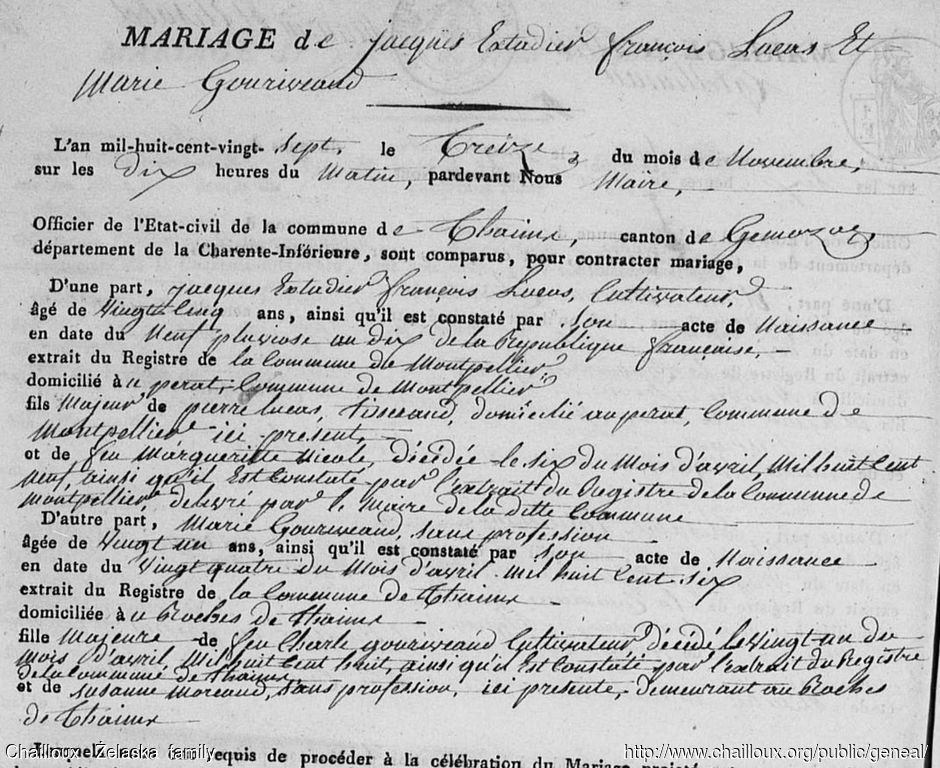 MARIAGE de Jacques Extadier françois Lucas Et
Marie Gouriveaud
L'an mil-huit-cent-vingt- Sept, le Treize du mois de Novembre,
sur les Dix heures du Matin, pardevant Nous Maire,
Officier de l'Etat-civil de la commune de Thaims, canton de Gemozac,
département de la Charente-Inférieure, sont comparus, pour contracter mariage,
D'une part, Jacques Extadier françois Lucas, Cultivateur,
âgé de Vingt Cinq ans, ainsi qu'il est constaté par Son acte de Naissance
en date du Neuf pluviose an dix de la République française,
extrait du Registre de la Commune de Montpellier
domicilié à u perat, Commune de Montpellier
fils Majeur de pierre Lucas, tisserand, domicilié au perat, Commune de
Montpellier ici présent,
et de feu Margueritte Nicole, décédée le six du Mois d'avril, Mil huit Cent
neuf, ainsi qu'il Est Constaté par l'extrait du Registre de la Commune de
Montpellier, délivré par le Maire de la ditte Commune
D'autre part, Marie Gouriveaud, sans profession
âgée de Vingt un ans, ainsi qu'il est constaté par son acte de Naissance
en date du Vingt quatre du Mois d'avril Mil huit Cent Six
extrait du Registre de la Commune de Thaims
domiciliée à u Roches de Thaims
fille Majeure de feu Charle gouriveaud Cultivateur, décédé le Vingt un du
mois d'avril, Mil huit Cent huit, ainsi qu'il Est Constaté par l'extrait du Registre
de la Commune de Thaims
et de Susanne Moreaud, sans profession, ici présente, demeurant au Roches
de Thaims
requis de procéder à la célébration du Mariage projeté
Chailloux Żelaska family
http://www.chailloux.org/public/geneal/